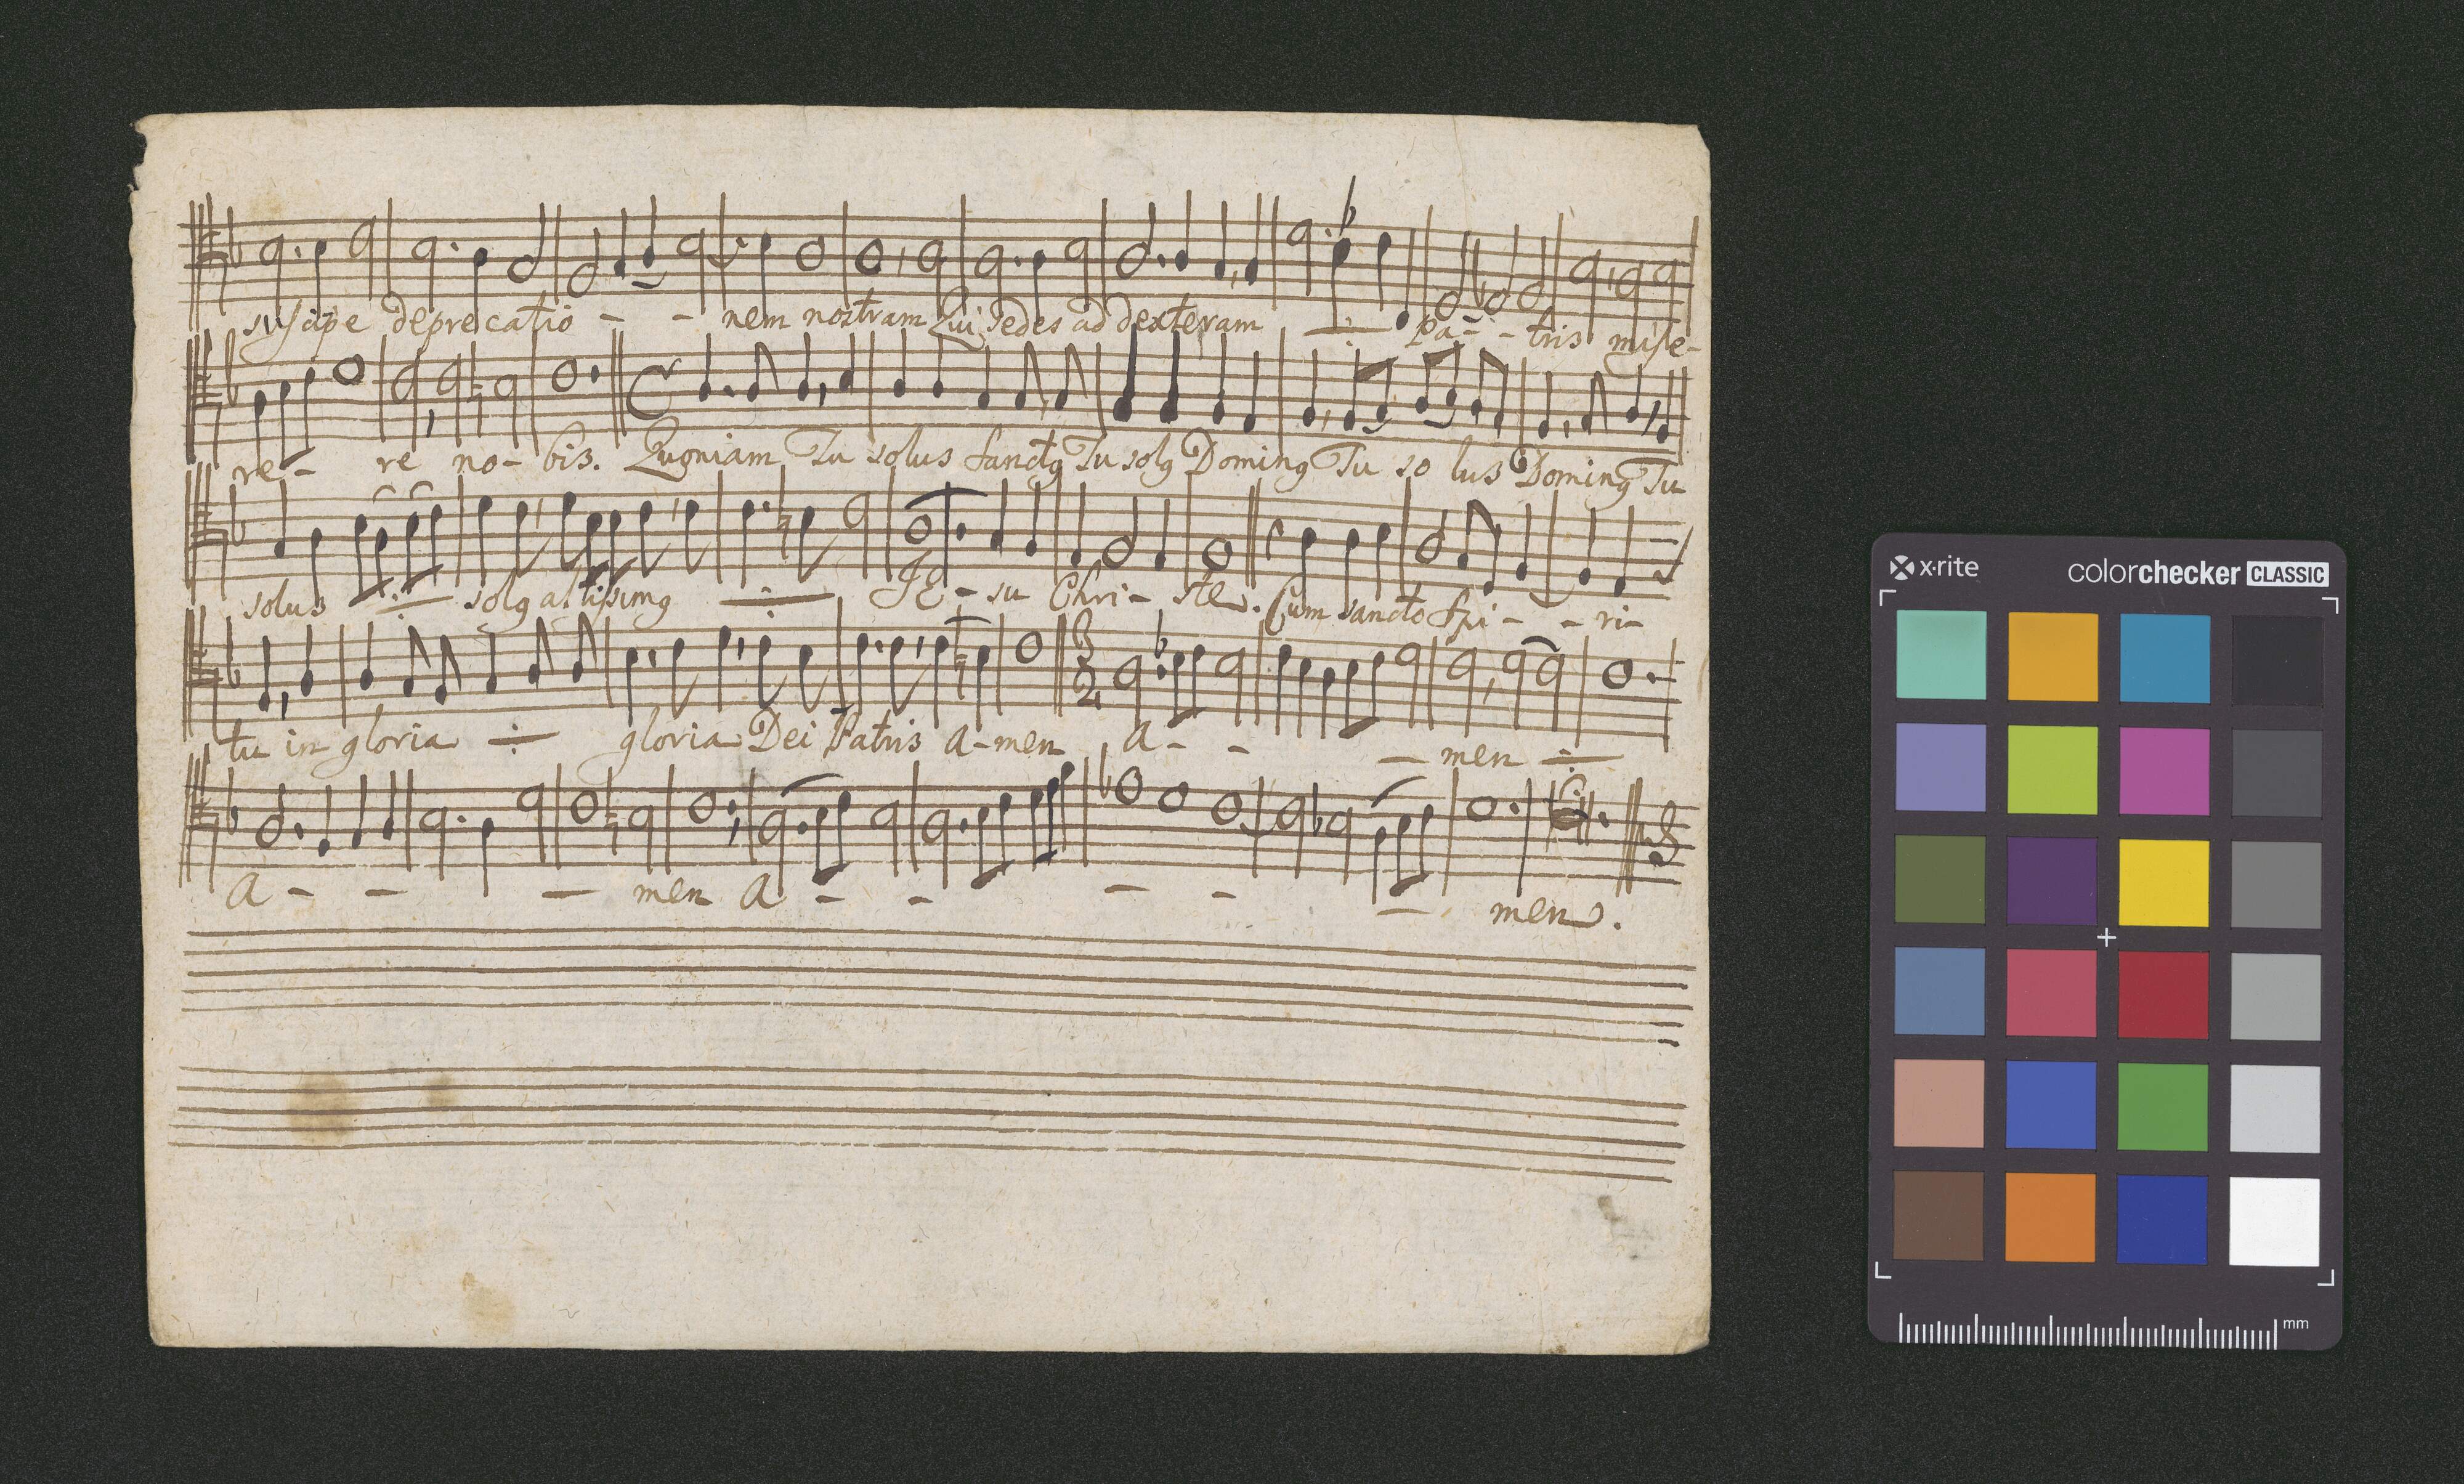 suscipe deprecatio - - nem nostram Qui sedes ad dexteram Pa - - tris mise-
re - re no - bis. Quoniam Tu solus Sanctg Tu solg Doming Tu so lus Doming Tu
solus solg altissimg JE - su Chri - ste. Cum sancto Spi - - ri-
tu in gloria gloria Dei Patris A - men A - - - men
A - - - men A - - - - - men.
x·rite colorchecker CLASSIC
mm